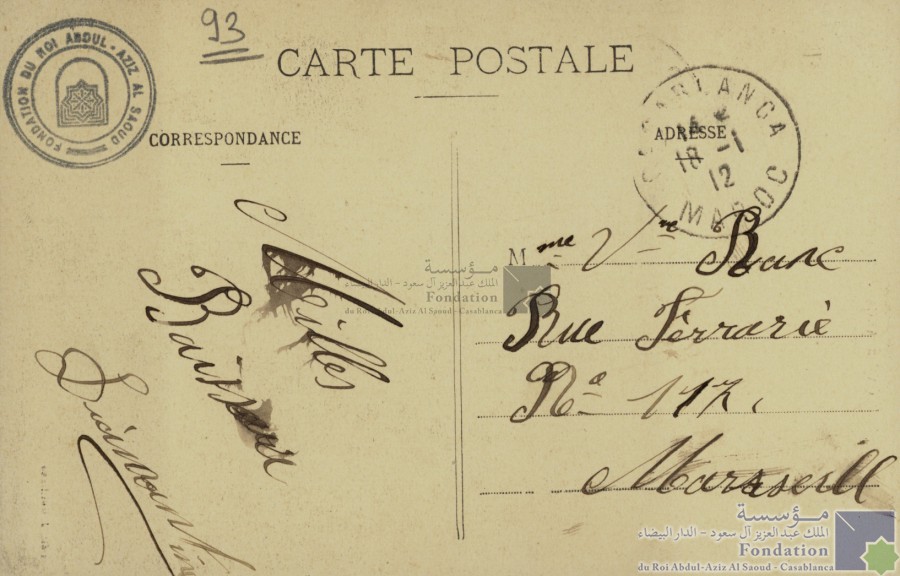 93
CARTE POSTALE
FONDATION DU ROI ABDUL-AZIZ AL SAOUD
CORRESPONDANCE
ADRESSE
CASABLANCA
18 -1
12
MAROC
Meilles
Mme Vve Banc
Rue Ferrarie
No 117,
Marseill
مؤسسة
الملك عبد العزيز آل سعود - الدار البيضاء
Fondation
du Roi Abdul-Aziz Al Saoud - Casablanca
مؤسسة
الملك عبد العزيز آل سعود - الدار البيضاء
Fondation
du Roi Abdul-Aziz Al Saoud - Casablanca